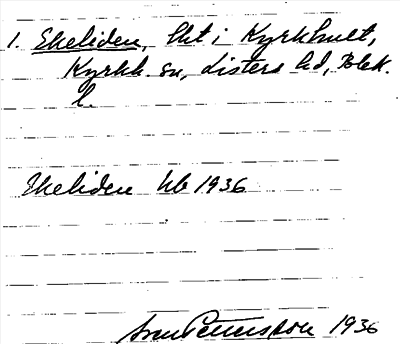 1. Ekeliden, lht i Kyrkhult,
Kyrkh. sn, Listers hd, Blek.
l.
Ekeliden hb 1936
Sven Pettersson 1936